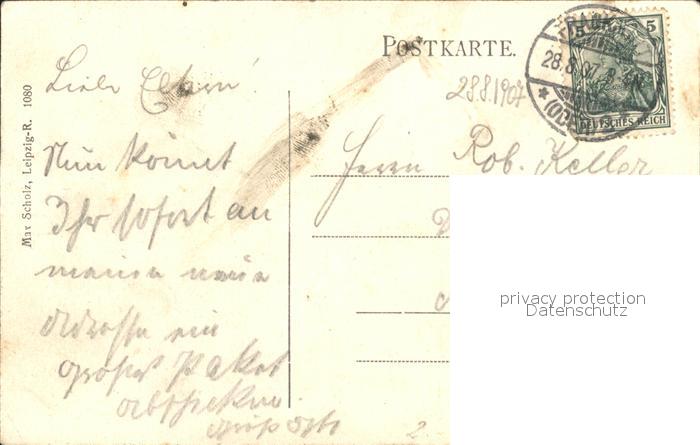 POSTKARTE.
28.8.07
5
5
DEUTSCHES REICH
28.8.1907
Max Scholz, Leipzig-R. 1080
Liebe Eltern!
Nun könnt
Ihr sofort an
meine neue
Adresse ein
großes Paket
abschicken.
Gruß Otto
Herrn Rob. Keller
2
privacy protection
Datenschutz